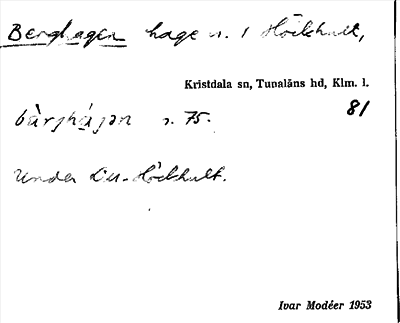 Berghagen hage n. 1 Höckhult,
Kristdala sn, Tunaläns hd, Klm. l.
81
bàrjhájən s. 75.
Under L:a Höckhult.
Ivar Modéer 1953